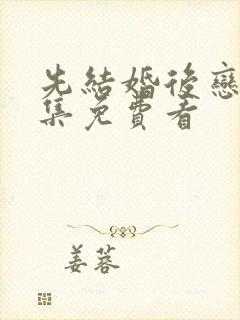 先結婚後戀
集免費看
姜蓉